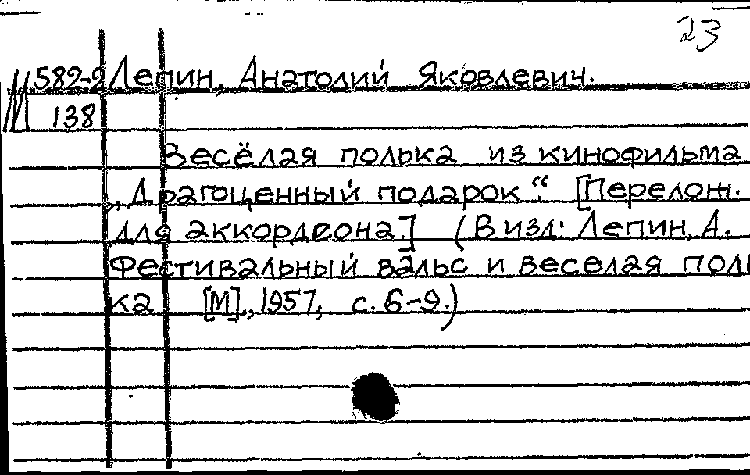 23
М 589-2 Лепин, Анатолий Яковлевич.
138
Весёлая полька из кинофильма
„Драгоценный подарок“. [Перелож.
для аккордеона.] (В изд: Лепин, А.
Фестивальный вальс и веселая поль
ка [М]., 1957, с. 6-9.)